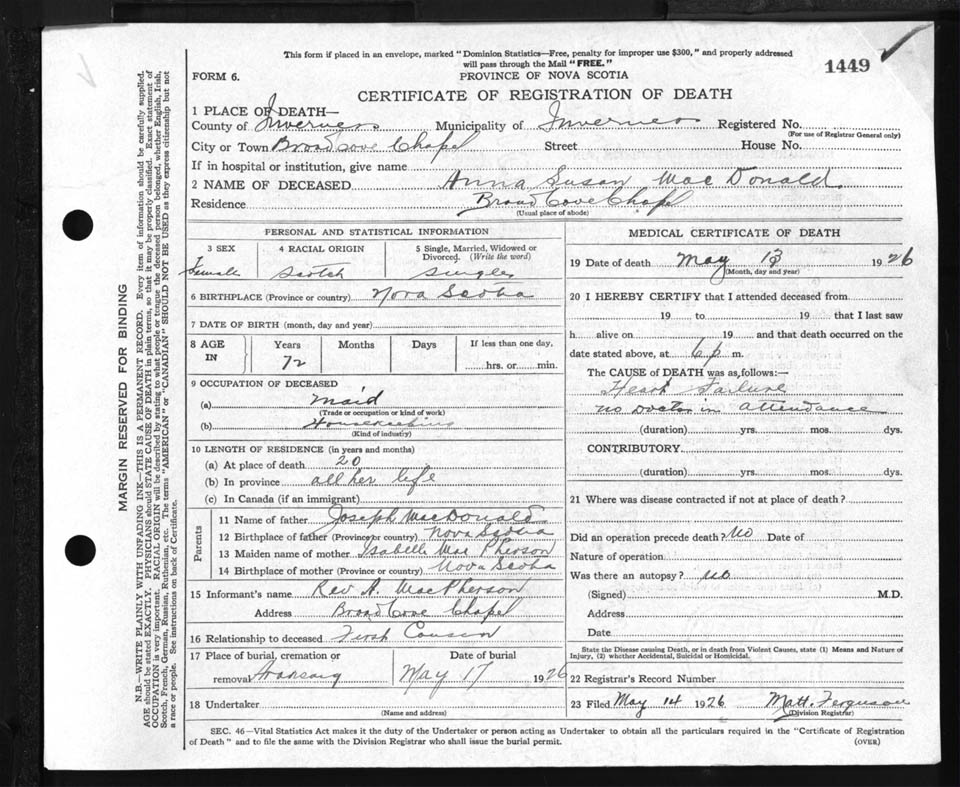 This form if placed in an envelope, marked "Dominion Statistics—Free, penalty for improper use $300," and properly addressed
will pass through the Mail "FREE."
1449
FORM 6.
PROVINCE OF NOVA SCOTIA
CERTIFICATE OF REGISTRATION OF DEATH
1 PLACE OF DEATH—
County of Inverness Municipality of Inverness Registered No.
(For use of Registrar General only)
City or Town Broad Cove Chapel Street House No.
If in hospital or institution, give name
2 NAME OF DECEASED Anna Susan MacDonald
Residence Broad Cove Chapl
(Usual place of abode)
PERSONAL AND STATISTICAL INFORMATION
3 SEX 4 RACIAL ORIGIN 5 Single, Married, Widowed or
Divorced. (Write the word)
Female Scotch Single
6 BIRTHPLACE (Province or country) Nova Scotia
7 DATE OF BIRTH (month, day and year)
8 AGE IN Years Months Days If less than one day,
72 hrs. or min.
9 OCCUPATION OF DECEASED
(a) Maid
(Trade or occupation or kind of work)
(b) Housekeeping
(Kind of industry)
10 LENGTH OF RESIDENCE (in years and months)
(a) At place of death 20
(b) In province all her life
(c) In Canada (if an immigrant)
Parents
11 Name of father Joseph MacDonald
12 Birthplace of father (Province or country) Nova Scotia
13 Maiden name of mother Isabelle MacPherson
14 Birthplace of mother (Province or country) Nova Scotia
15 Informant's name Rev A. MacPherson
Address Broad Cove Chapel
16 Relationship to deceased First Cousin
17 Place of burial, cremation or Date of burial
removal May 17 1926
18 Undertaker
(Name and address)
MEDICAL CERTIFICATE OF DEATH
19 Date of death May 13 1926
(Month, day and year)
20 I HEREBY CERTIFY that I attended deceased from
19 to 19 that I last saw
h alive on 19 and that death occurred on the
date stated above, at 6 p m.
The CAUSE of DEATH was as follows:—
Heart Failure
no Doctor in attendance
(duration) yrs. mos. dys.
CONTRIBUTORY
(duration) yrs. mos. dys.
21 Where was disease contracted if not at place of death?
Did an operation precede death? No Date of
Nature of operation
Was there an autopsy? no
(Signed) M.D.
Address
Date
State the Disease causing Death, or in death from Violent Causes, state (1) Means and Nature of
Injury, (2) whether Accidental, Suicidal or Homicidal.
22 Registrar's Record Number
23 Filed May 14 1926 Matt. Ferguson
(Division Registrar)
SEC. 46—Vital Statistics Act makes it the duty of the Undertaker or person acting as Undertaker to obtain all the particulars required in the "Certificate of Registration
of Death" and to file the same with the Division Registrar who shall issue the burial permit. (OVER)
MARGIN RESERVED FOR BINDING
N.B.—WRITE PLAINLY WITH UNFADING INK—THIS IS A PERMANENT RECORD. Every item of information should be carefully supplied.
AGE should be stated EXACTLY. PHYSICIANS should STATE CAUSE OF DEATH in plain terms, so that it may be properly classified. Exact statement of
OCCUPATION is very important. RACIAL ORIGIN will be described by stating to what people or tongue the deceased person belonged, whether English, Irish,
Scotch, French, German, Russian, Ruthenian, etc. The terms "AMERICAN" or "CANADIAN" SHOULD NOT BE USED as they express citizenship but not
a race or people. See instructions on back of Certificate.